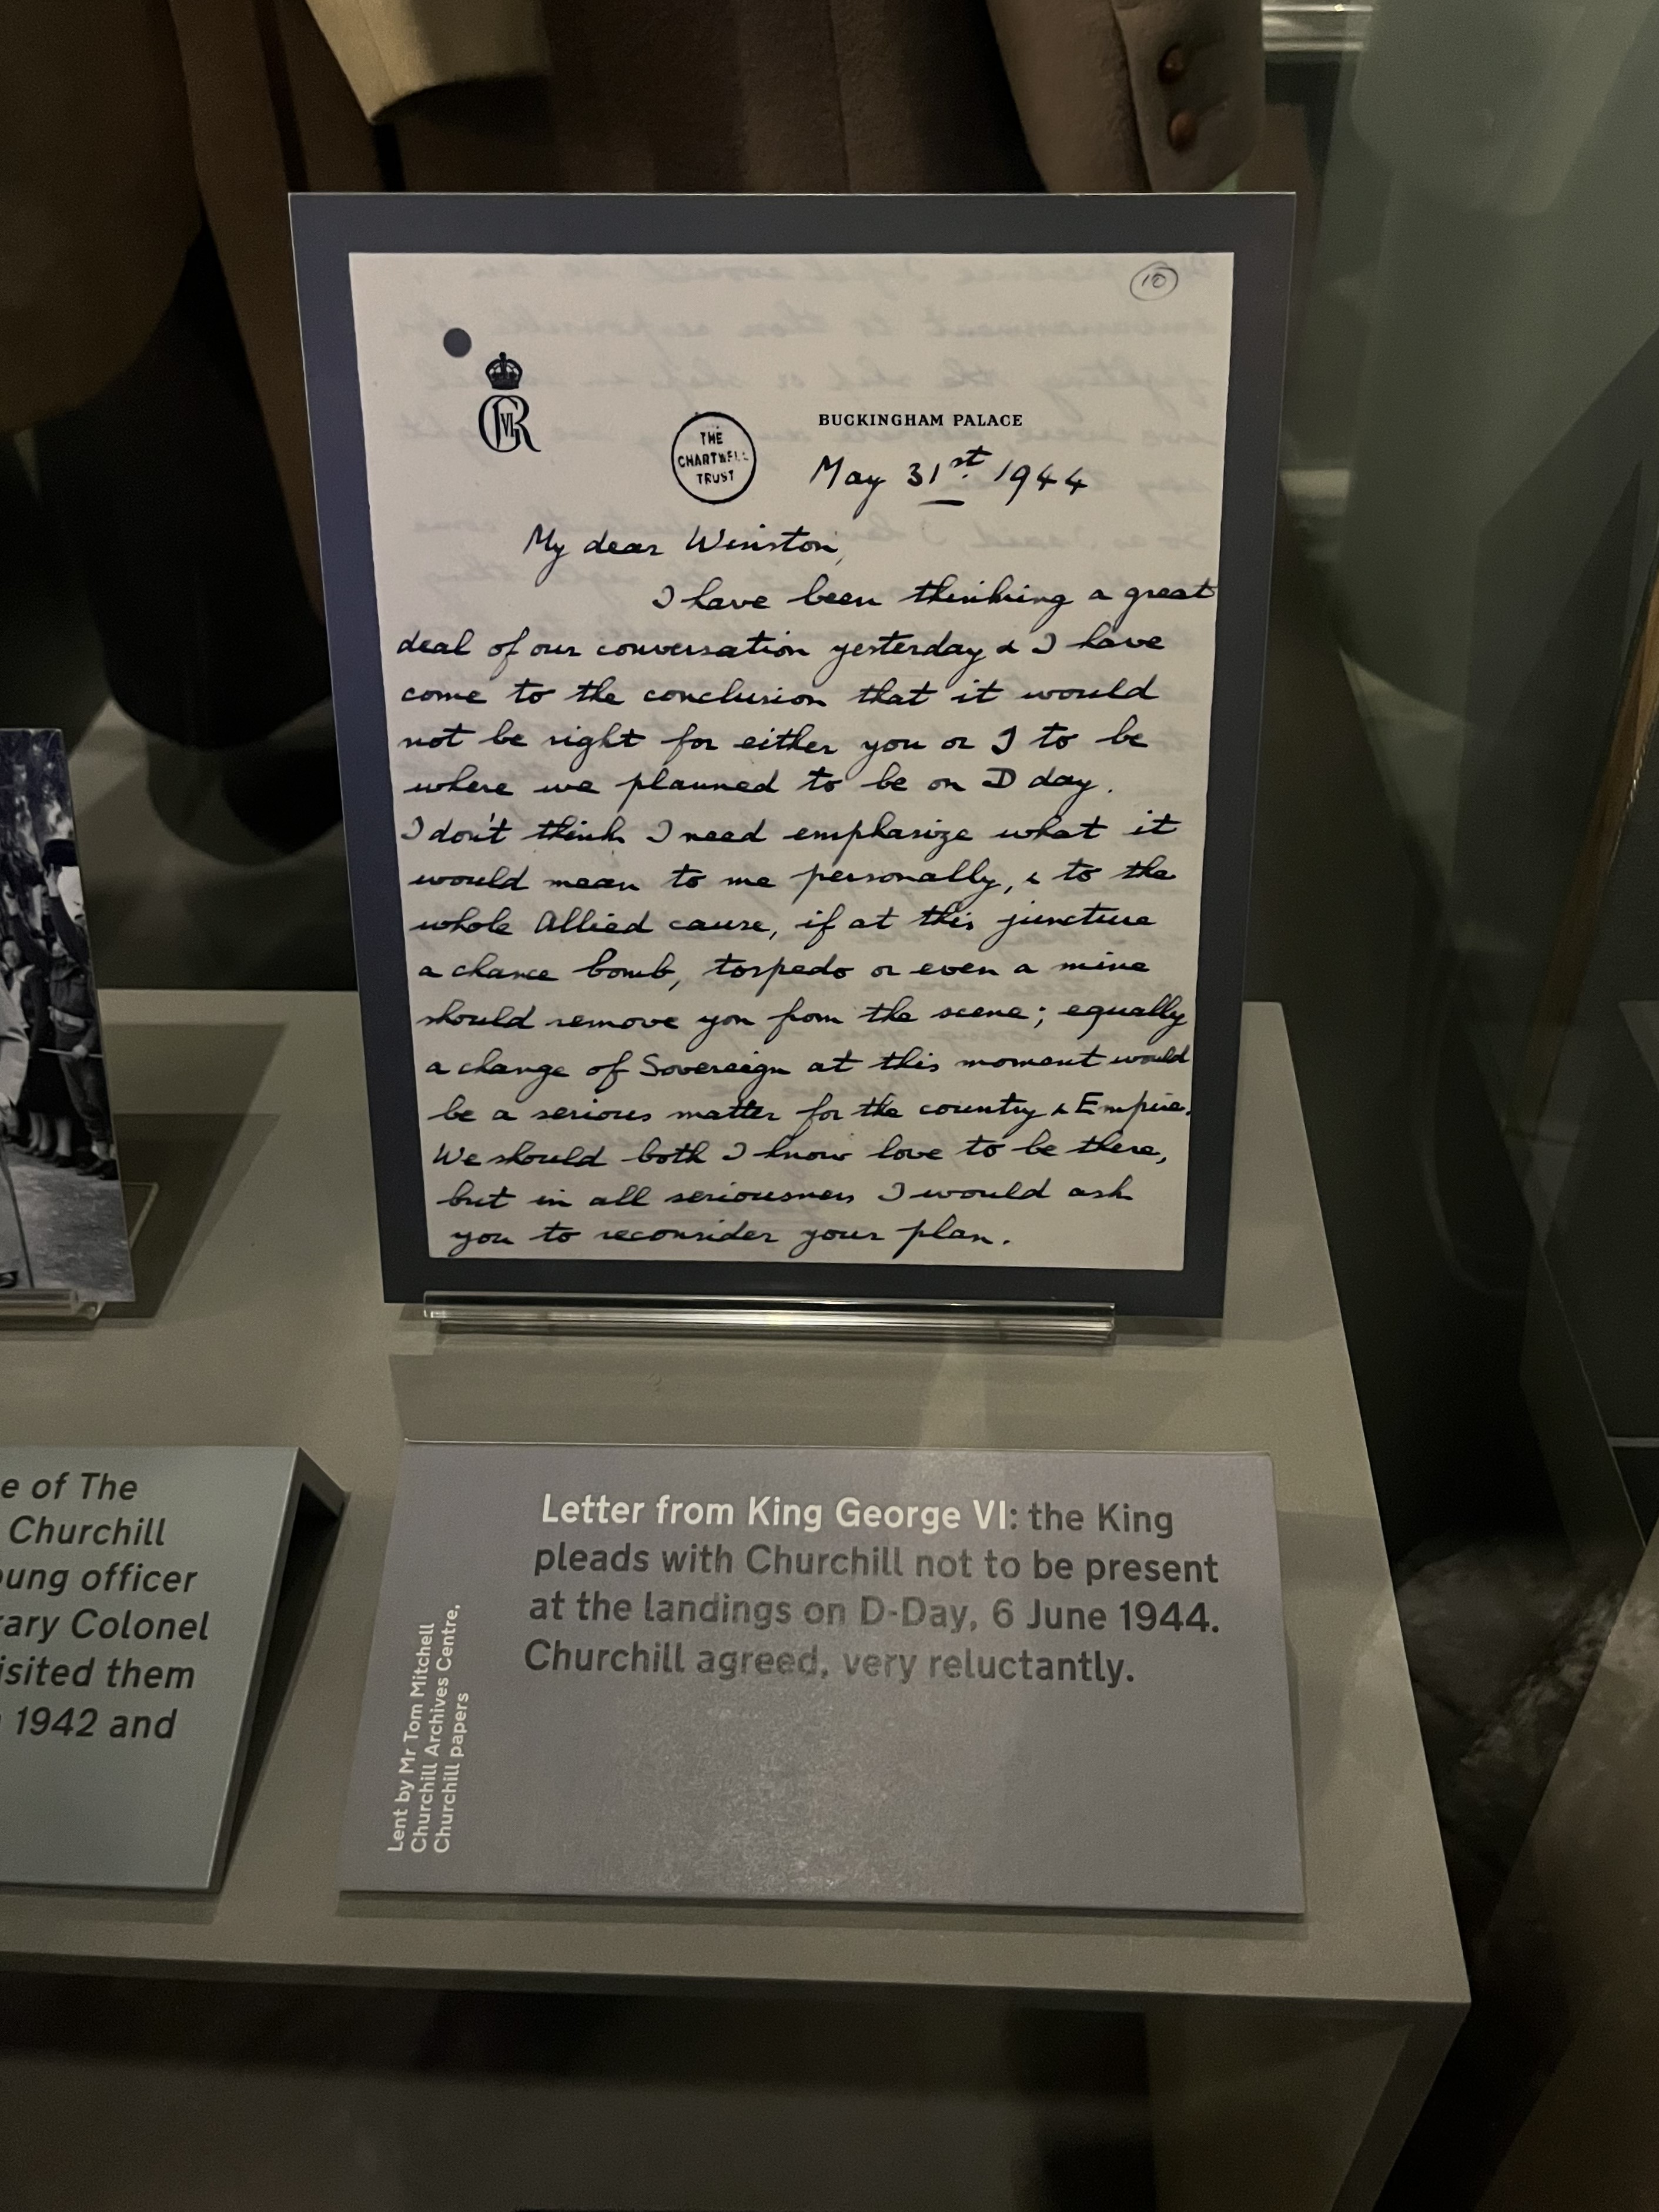 10
GVIR
BUCKINGHAM PALACE
THE
CHARTWELL
TRUST
May 31st. 1944
My dear Winston,
I have been thinking a great
deal of our conversation yesterday & I have
come to the conclusion that it would
not be right for either you or I to be
where we planned to be on D day.
I don't think I need emphasize what it
would mean to me personally, & to the
whole Allied cause, if at this juncture
a chance bomb, torpedo or even a mine
should remove you from the scene; equally
a change of Sovereign at this moment would
be a serious matter for the country & Empire.
We should both I know love to be there,
but in all seriousness I would ask
you to reconsider your plan.
e of The
Churchill
oung officer
rary Colonel
isited them
1942 and
Letter from King George VI: the King
pleads with Churchill not to be present
at the landings on D-Day, 6 June 1944.
Churchill agreed, very reluctantly.
Lent by Mr Tom Mitchell
Churchill Archives Centre,
Churchill papers